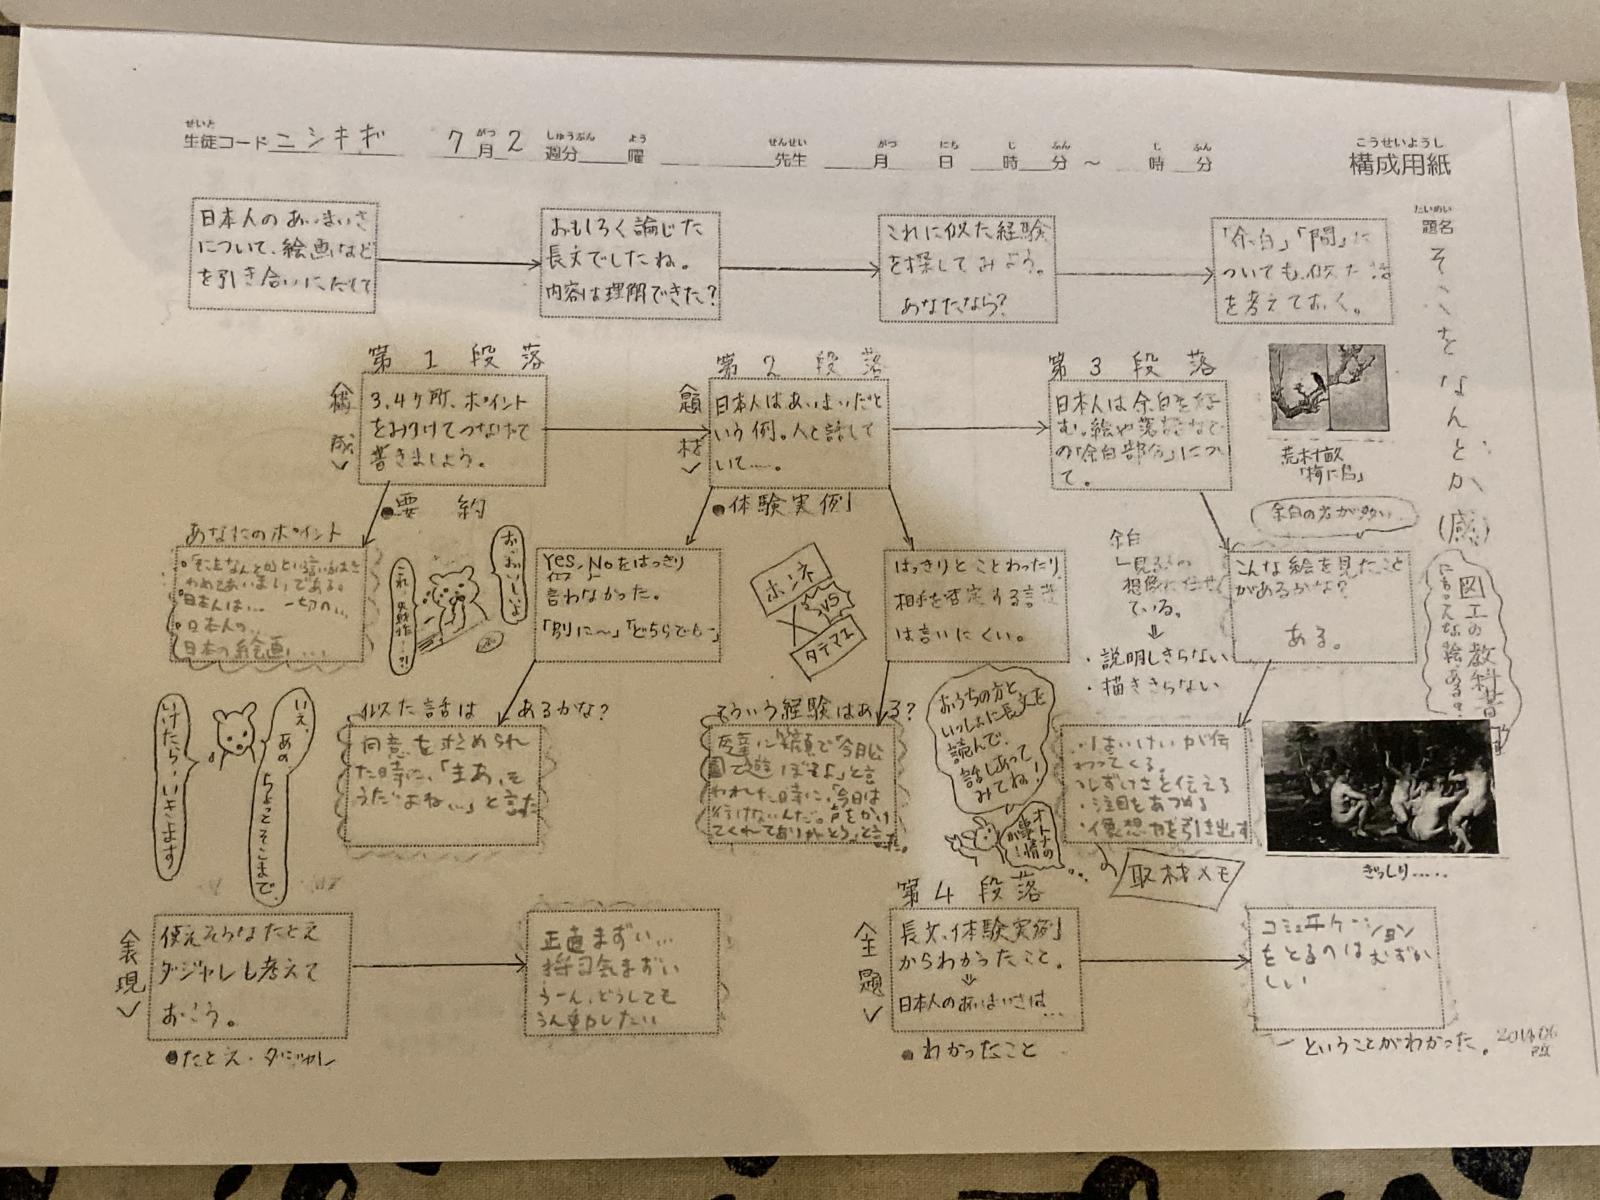 せいと
生徒コード ニシキギ 7月2週分 曜 先生 月 日 時 分 ～ 時 分
がつ しゅうぶん よう せんせい がつ にち じ ふん じ ふん
こうせいようし
構成用紙
だいめい
題名
そこをなんとか(感)
日本人のあいまいさ
について、絵画など
を引き合いにだして
おもしろく論じた
長文でしたね。
内容は理解できた?
これに似た経験
を探してみよう。
あなたなら?
「余白」「間」に
ついても似た話
を考えておく。
第1段落
〈構成〉
3,4ヶ所、ポイント
をみつけてつなげて
書きましょう。
●要約
第2段落
〈題材〉
日本人はあいまいだと
いう例。人と話して
いて……。
●体験実例
第3段落
日本人は余白を好
む。絵や落語などで
の「余白部分」につい
て。
荒木村敏
「梅に鳥」
余白の方が多い
あなたのポイント
「そこをなんとか」という言いはき
わめてあいまいである。
日本人は… 一切の…
日本人の…
日本の絵画…
これ、失敗作…?!
おっ、おいしいよ
Yes, Noをはっきり
言わなかった。
「別に〜」「どちらでも〜」
ホンネ
VS
タテマエ
はっきりとことわったり
相手を否定する言葉
は言いにくい。
余白
見るもの
想像に任せ
ている。
⇓
・説明しきらない
・描ききらない
こんな絵を見たこと
があるかな?
ある。
図工の教科書
にもこんな絵ある?
いえ、あの ちょっとそこまで、
いけたら、いきます
似た話は あるかな?
同意を求められ
た時に、「まあ、そ
うだよね…」と言った
そういう経験はある?
友達に笑顔で「今日公
園で遊ぼぜよ」と言
われた時に、「今日は
行けないんだ。声をかけ
てくれてありがとう」と言った。
おうちの方と
いっしょに長文を
読んで、
話しあって
みてね!
オトナの
事情
が!
・はいけいが伝
わってくる
・しずけさを伝える
・注目をあつめる
・想像力を引き出す
取材メモ
ぎっしり……
〈表現〉
使えそうなたとえ
ダジャレも考えて
おこう。
●たとえ・ダジャレ
正直まずい…
将司気まずい
うーん、どうしても
うん動かしたい
第4段落
〈主題〉
長文、体験実例
からわかったこと。
⇓
日本人のあいまいさは…
●わかったこと
コミュニケーション
をとるのはむずか
しい
ということがわかった。